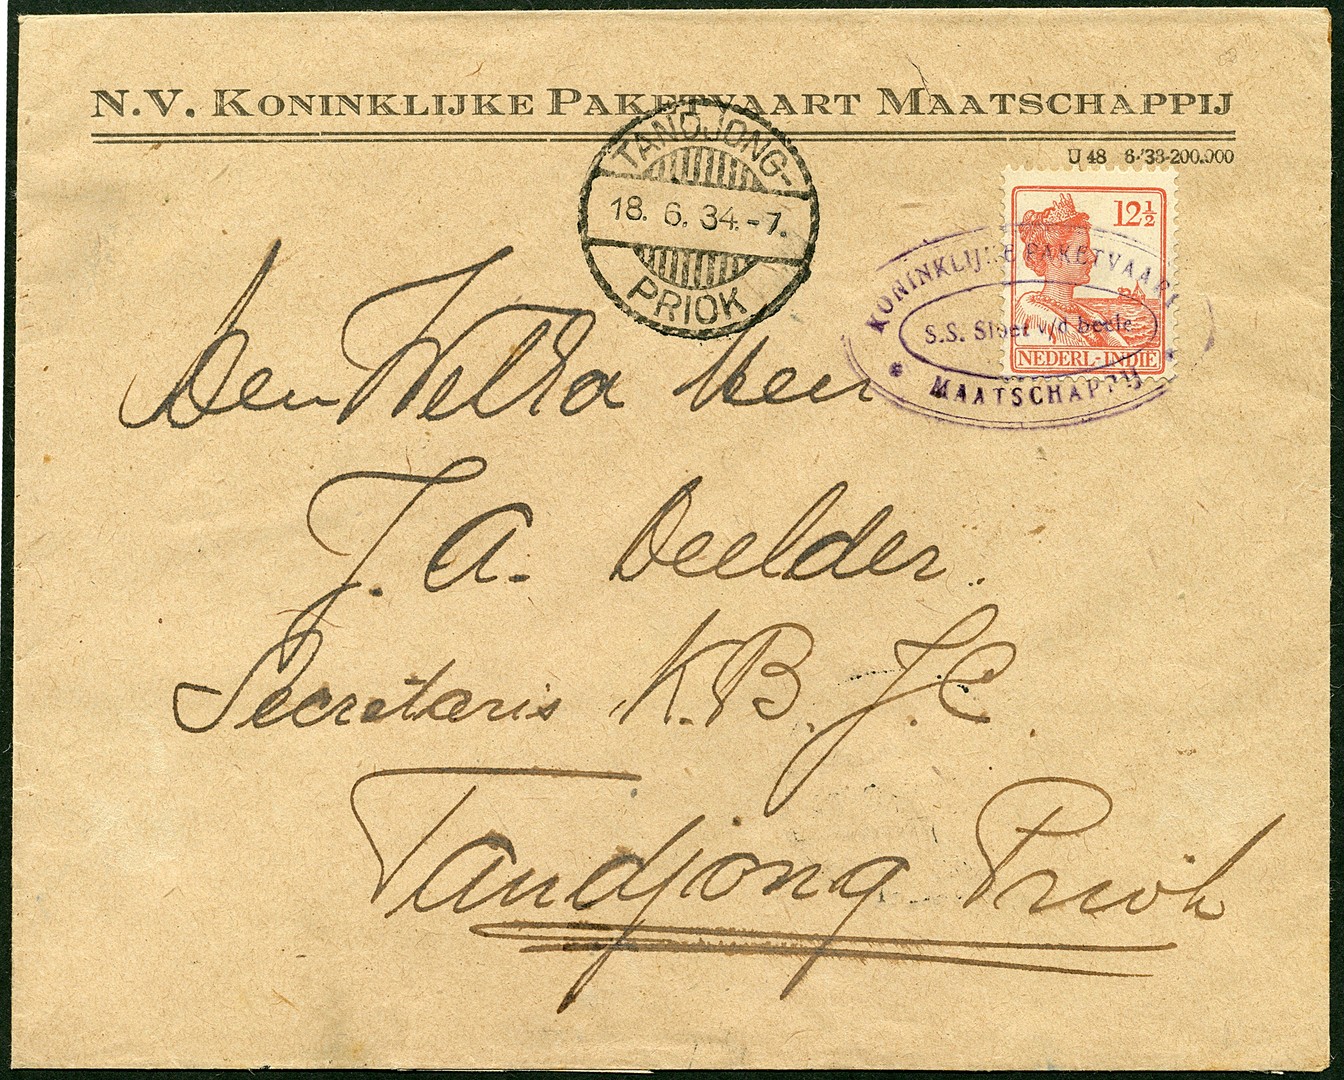 N.V. KONINKLIJKE PAKETVAART MAATSCHAPPIJ
U 48 6-'33-200.000
TANDJONG-
18. 6. 34.-7.
PRIOK
12½
NEDERL-INDIE
KONINKLIJKE PAKETVAART
S.S. Sloet v/d beele
MAATSCHAPPIJ
Den WelEd Heer
J. A. Deelder.
Secretaris K.B. J.C.
Tandjong Priok